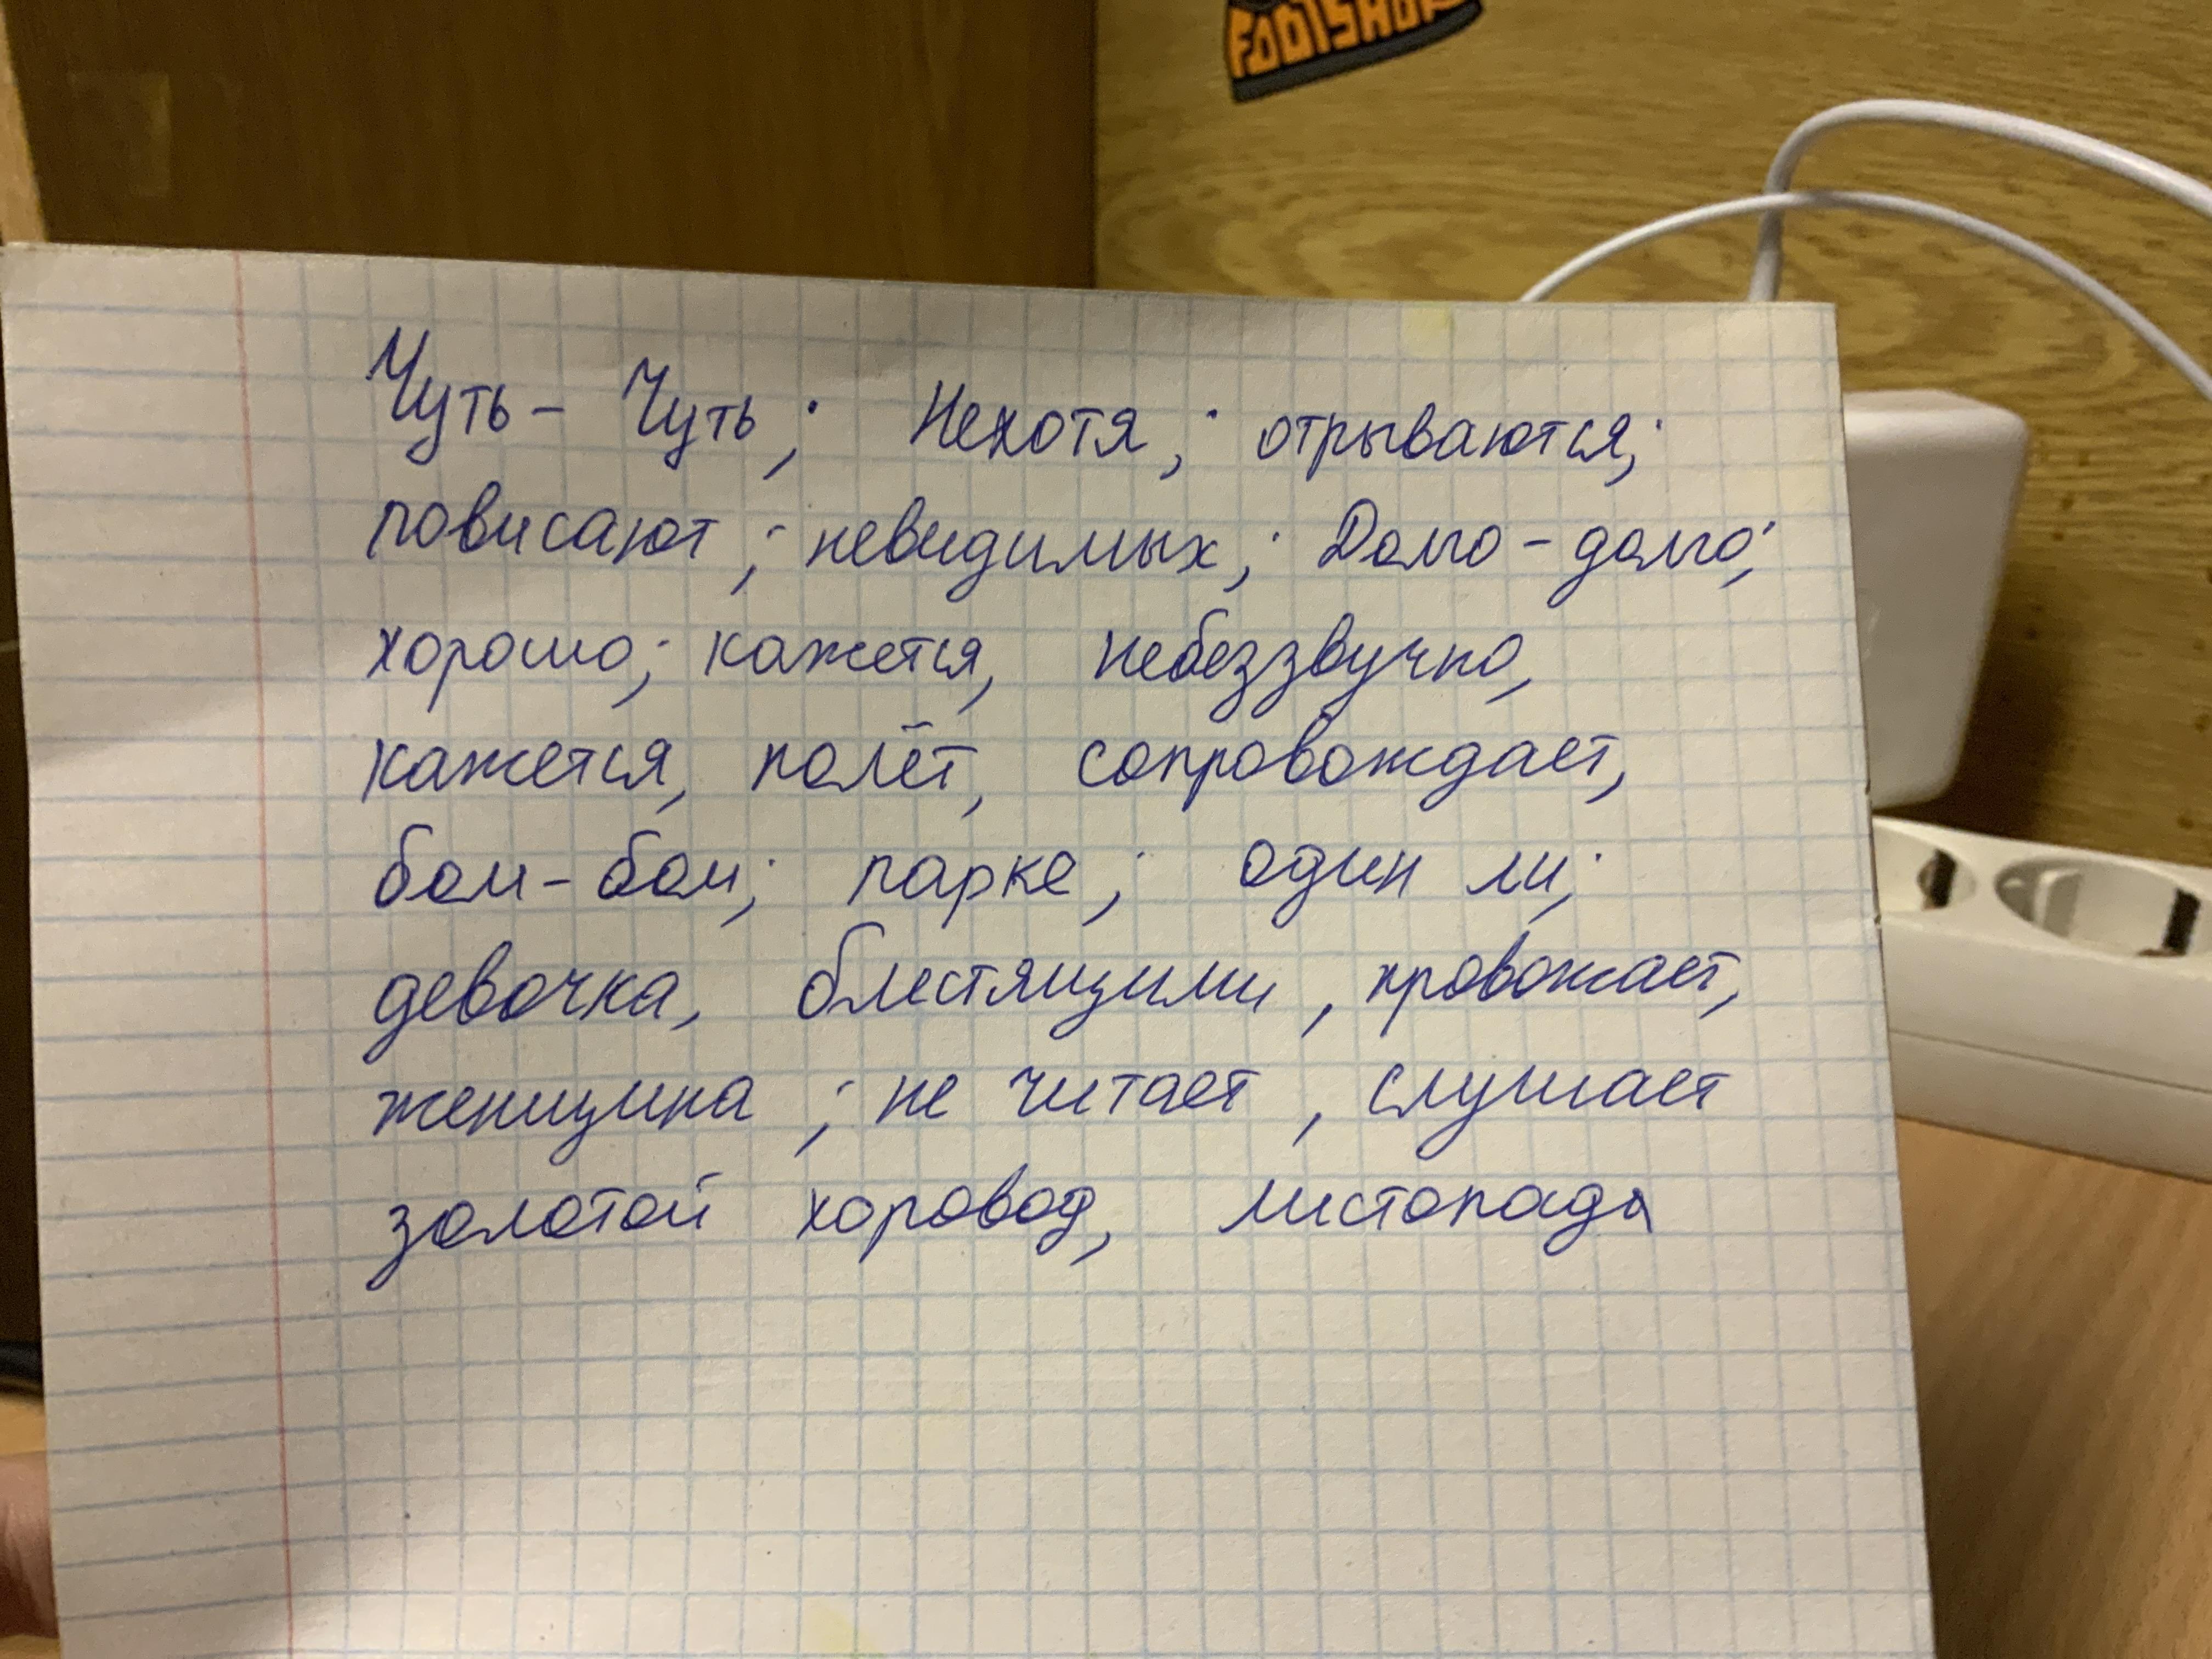 FOOTSHOP
Чуть - Чуть; Нехотя; отрываются;
повисают; невидимых; Долго - долго;
хорошо; кажется, небеззвучно,
кажется, полёт, сопровождает,
бом-бом; парке; один ли;
девочка, блестящими, провожает,
женщина; не читает, слушает
золотой хоровод, листопада